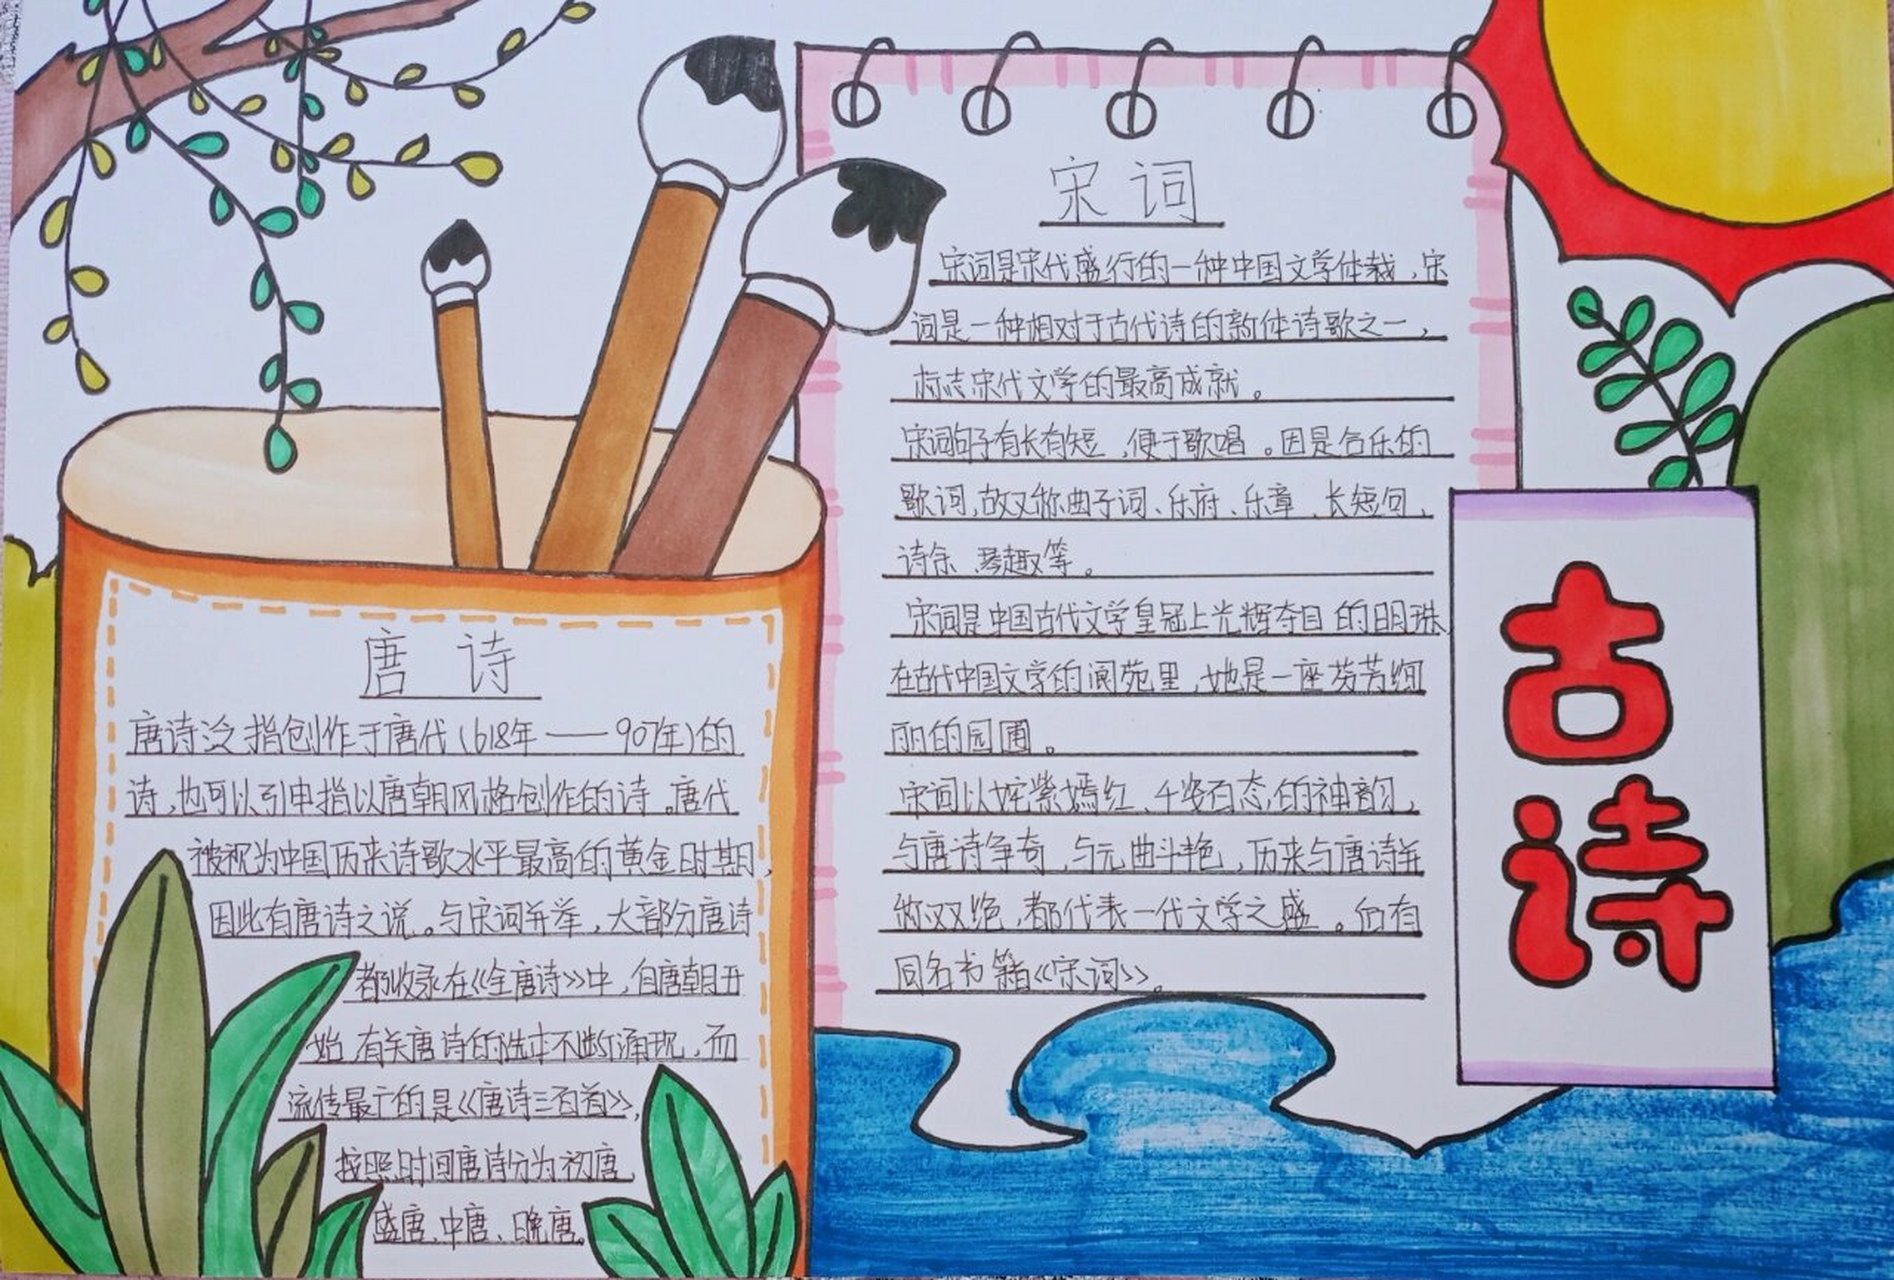 唐诗
唐诗泛指创作于唐代(618年——907年)的
诗,也可以引申指以唐朝风格创作的诗。唐代
被视为中国历来诗歌水平最高的黄金时期,
因此有唐诗之说。与宋词并举,大部分唐诗
都收录在《全唐诗》中,自唐朝开
始,有关唐诗的选本不断涌现,而
流传最广的是《唐诗三百首》,
按照时间唐诗分为初唐
盛唐、中唐、晚唐。
宋词
宋词是宋代盛行的一种中国文学体裁,宋
词是一种相对于古代诗的新体诗歌之一,
标志宋代文学的最高成就。
宋词句子有长有短,便于歌唱。因是合乐的
歌词,故又称曲子词、乐府、乐章、长短句、
诗余、琴趣等。
宋词是中国古代文学皇冠上光辉夺目的明珠
在古代中国文学的阆苑里,她是一座芬芳绚
丽的园圃。
宋词以姹紫嫣红、千姿百态的神韵,
与唐诗争奇,与元曲斗艳,历来与唐诗并
称双绝,都代表一代文学之盛。仍有
同名书籍《宋词》。
古诗